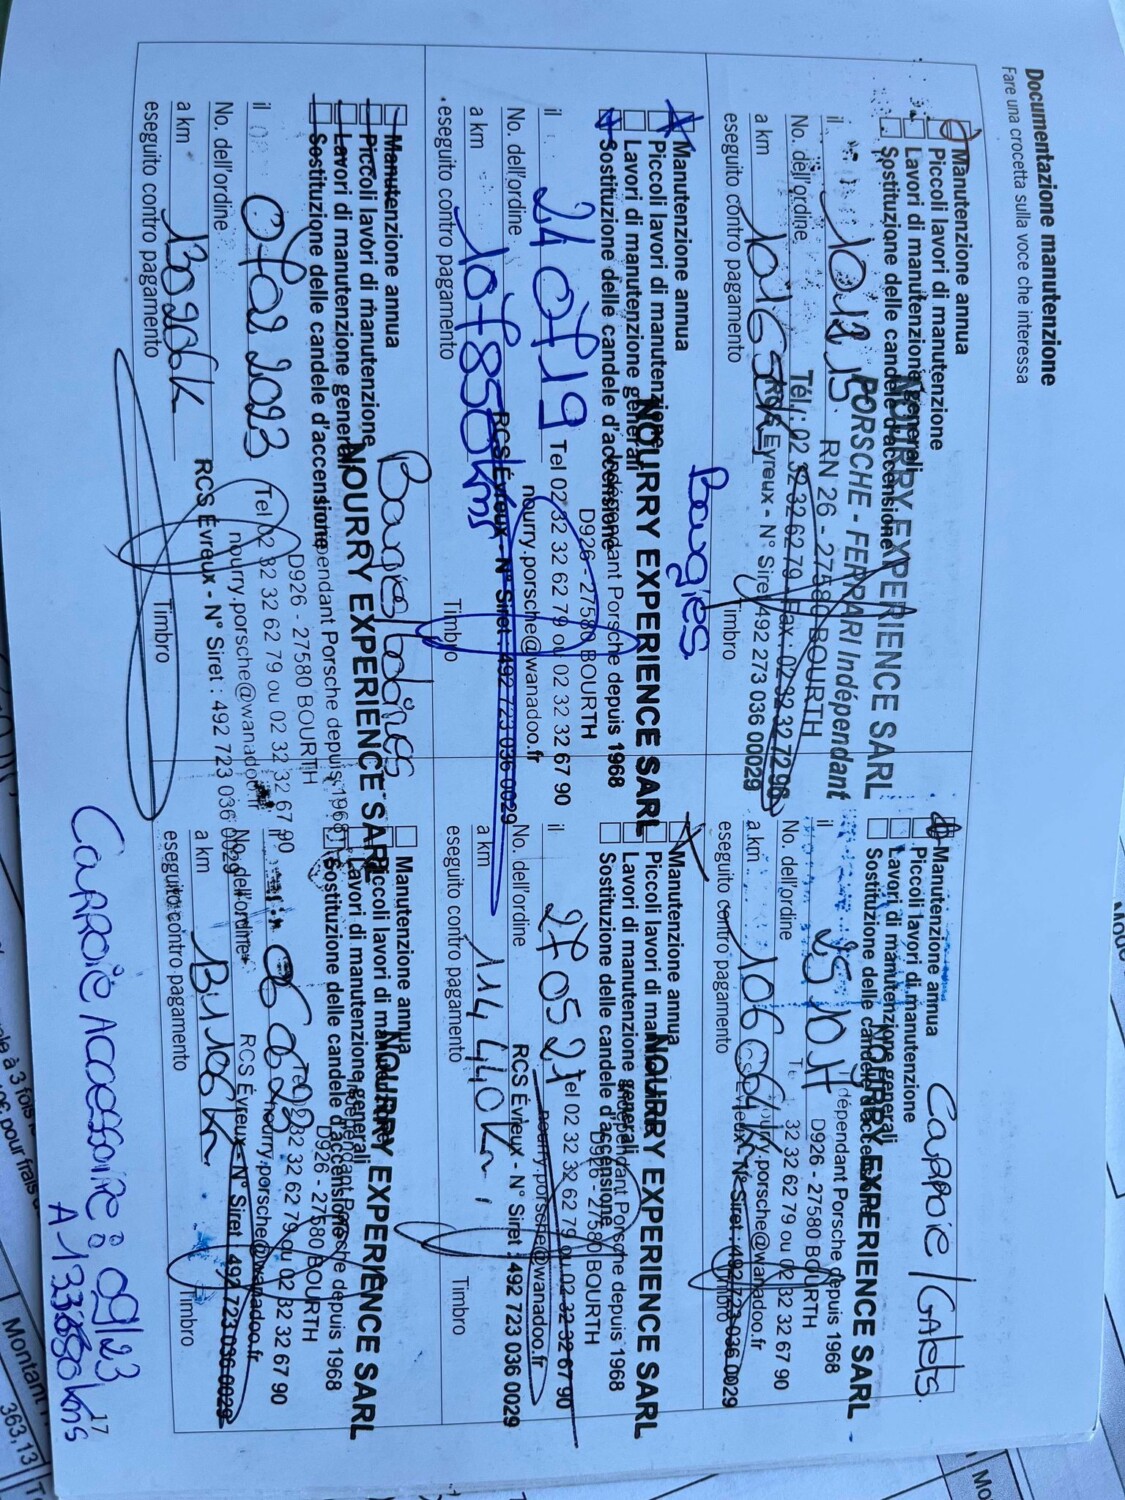 Documentazione manutenzione
Fare una crocetta sulla voce che interessa
Manutenzione annua
Piccoli lavori di manutenzione
Lavori di manutenzione generali
Sostituzione delle candele d'accensione
NOURRY EXPERIENCE SARL
PORSCHE - FERRARI Indépendant
RN 26 - 27580 BOURTH
Tél. : 02 32 32 62 79 - Fax : 02 32 32 72 96
RCS Evreux - N° Siret 492 273 036 00029
il 10 12 15
No. dell'ordine
a km 101651K
eseguito contro pagamento
Timbro
Courroie / Galets
Manutenzione annua
Piccoli lavori di manutenzione
Lavori di manutenzione generali
Sostituzione delle candele d'accensione
NOURRY EXPERIENCE SARL
Indépendant Porsche depuis 1968
D926 - 27580 BOURTH
32 32 62 79 ou 02 32 32 67 90
nourry.porsche@wanadoo.fr
RCS Evreux - N° Siret : 492 723 036 0029
il 25 10 17
No. dell'ordine
a km 106 064k
eseguito contro pagamento
Timbro
Bougies
Manutenzione annua
Piccoli lavori di manutenzione
Lavori di manutenzione generali
Sostituzione delle candele d'accensione
NOURRY EXPERIENCE SARL
Indépendant Porsche depuis 1968
D926 - 27580 BOURTH
Tel 02 32 32 62 79 ou 02 32 32 67 90
nourry.porsche@wanadoo.fr
RCS Évreux - N° Siret : 492 723 036 0029
il 24 07 19
No. dell'ordine
a km 107850kms
eseguito contro pagamento
Timbro
Manutenzione annua
Piccoli lavori di manutenzione
Lavori di manutenzione generali
Sostituzione delle candele d'accensione
NOURRY EXPERIENCE SARL
Indépendant Porsche depuis 1968
D926 - 27580 BOURTH
Tel 02 32 32 62 79 ou 02 32 32 67 90
nourry.porsche@wanadoo.fr
RCS Évreux - N° Siret : 492 723 036 0029
il 27 05 21
No. dell'ordine
a km 114 440k
eseguito contro pagamento
Timbro
Bougies/bobines
Manutenzione annua
Piccoli lavori di manutenzione
Lavori di manutenzione generali
Sostituzione delle candele d'accensione
NOURRY EXPERIENCE SARL
Indépendant Porsche depuis 1968
D926 - 27580 BOURTH
Tel 02 32 32 62 79 ou 02 32 32 67 90
nourry.porsche@wanadoo.fr
RCS Évreux - N° Siret : 492 723 036 0029
il 07 02 2023
No. dell'ordine
a km
eseguito contro pagamento
Timbro
Manutenzione annua
Piccoli lavori di manutenzione
Lavori di manutenzione generali
Sostituzione delle candele d'accensione
NOURRY EXPERIENCE SARL
Indépendant Porsche depuis 1968
D926 - 27580 BOURTH
Tel 02 32 62 79 ou 02 32 32 67 90
nourry.porsche@wanadoo.fr
RCS Évreux - N° Siret : 492 723 036 0029
il
No. dell'ordine
a km
eseguito contro pagamento
Timbro
Courroie Accessoire : 09/23
17
Montant
363,13